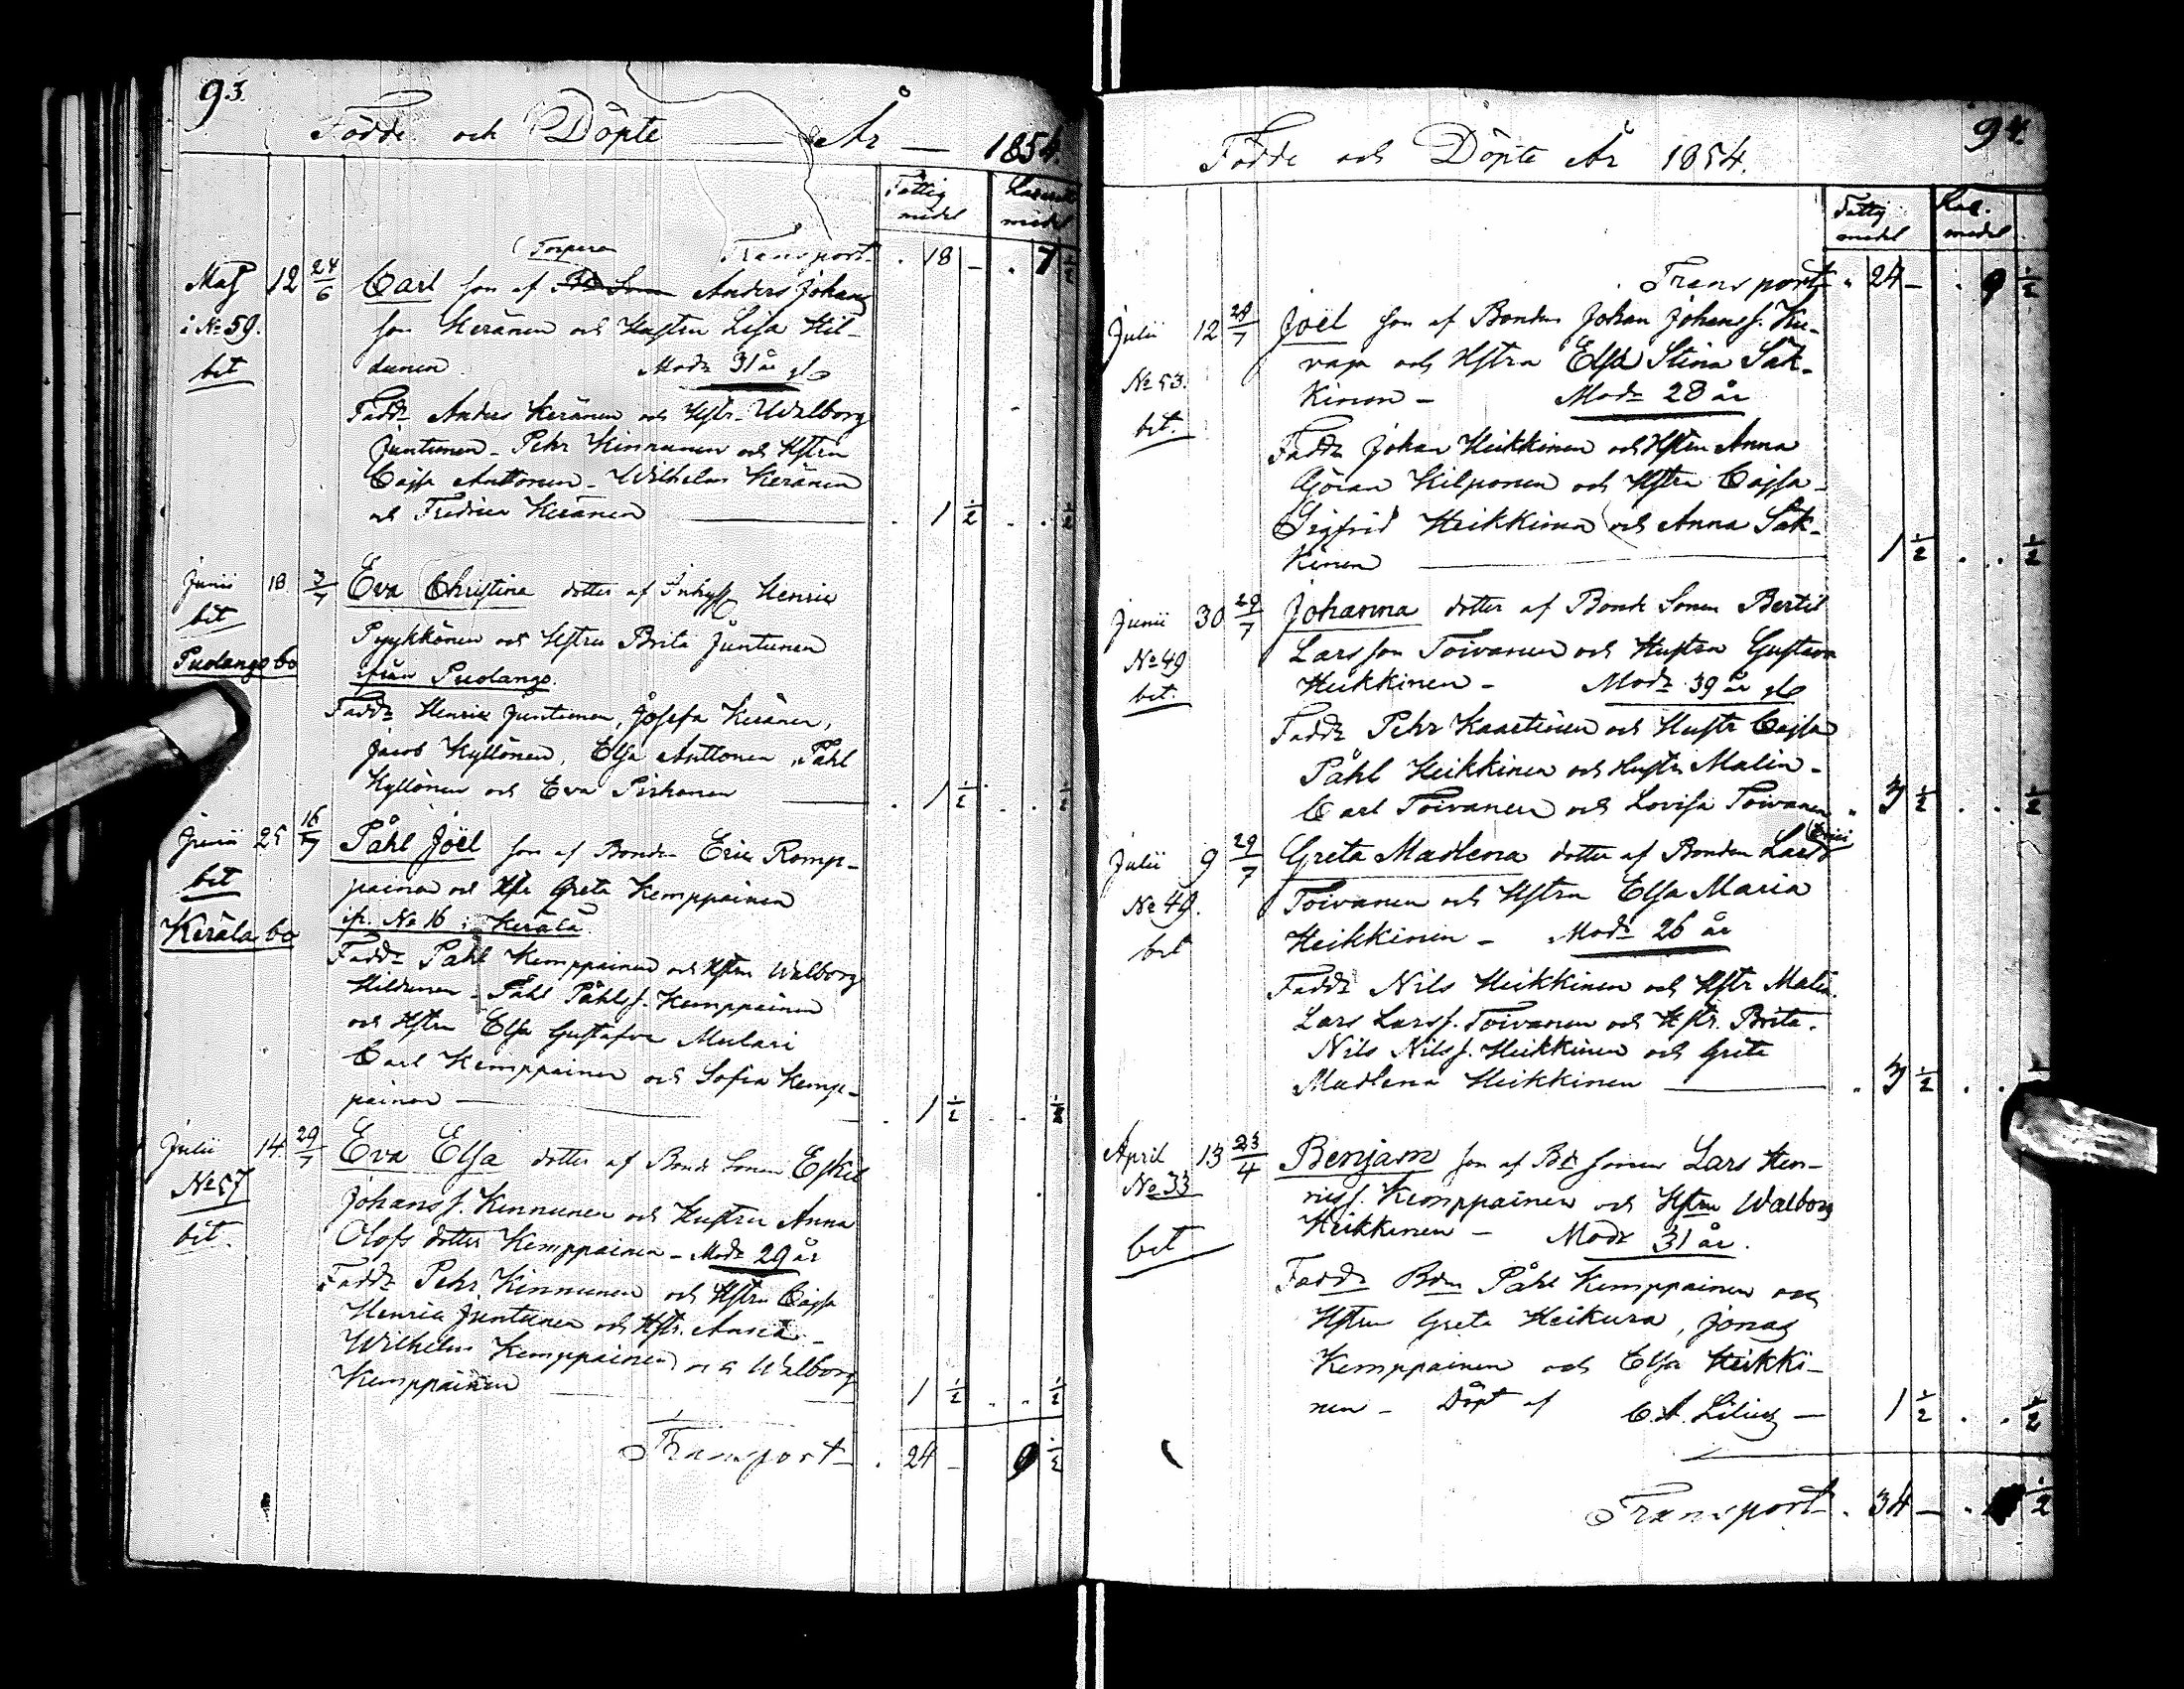 93.
Födde och Döpte — År — 1854.
Fattig medel
medel
Transport . 18 — . 7 1/2
Torparen
Maj 12 24/6 Carl son af Anders Johans
i No 59. son Keränen och Hustru Lisa Hil-
bet dunen. Modr 31 år
Faddr Anders Keränen och Hstr. Walborg
Juntunen - Pehr Kinnunen och Hstru
Cajsa Anttonen - Wilhelm Keränen
och Fredrica Keränen — . 1 1/2 . . 1/2
Junii 18 3/7 Eva Christina dotter af Inhys Henric
bet Pyykkönen och Hstru Brita Juntunen
Puolango bo ifrån Puolango.
Faddr Henric Juntunen, Josefa Keränen,
Jacob Kyllönen, Elsa Anttonen, Påhl
Kyllönen och Eva Pirhonen — . 1 1/2 . . 1/2
Junii 25 16/7 Påhl Joël son af Bonden Eric Romp-
bet painen och Hstr Greta Kemppainen
Kerälä bo ifr. No 16 i Kerälä.
Faddr Påhl Kemppainen och Hstru Walborg
Hildunen - Påhl Påhlss. Kemppainen
och Hstru Elsa Gustafva Mulari
Carl Kemppainen och Sofia Kemp-
painen — . 1 1/2 . . 1/2
Julii 14 29/7 Eva Elsa dotter af Bonde Sonen Eskil
No 57 Johanss. Kinnunen och Hustru Anna
bet. Olofs dotter Kemppainen - Modr 29 år
Faddr Pehr Kinnunen och Hstru Cajsa
Henric Juntunen och Hstr.
Wilhelm Kemppainen och Walborg
Kemppainen — 1 1/2 . . 1/2
Transport . 24 — 9 1/2
94.
Födde och Döpte År 1854.
Fattig medel
medel
Transport . 24 — . 9 1/2
Julii 12 29/7 Joël son af Bonden Johan Johanss. Ku-
No 53. vaja och Hstru Elsa Stina Säk-
bet. kinen - Modr 28 år
Faddr Johan Heikkinen och Hstru Anna
Göran Kilponen och Hstru Cajsa -
Sigfrid Heikkinen och Anna Säk-
kinen — 1 1/2 . . 1/2
Junii 30 29/7 Johanna dotter af Bonde Sonen Bertil
No 49 Larsson Toivanen och Hustru Gustava
bet. Heikkinen - Modr 39 år
Faddr Pehr och Hustr Cajsa
Påhl Heikkinen och Hustr Malin -
Carl Toivanen och Lovisa Toivanen . 3 1/2 . . 1/2
Julii 9 29/7 Greta Madlena dotter af Bonden Lars
No 49. Toivanen och Hstru Elsa Maria
bet Heikkinen - Modr 26 år
Faddr Nils Heikkinen och Hstr Malin.
Lars Larss. Toivanen och Hstr. Brita.
Nils Nilss. Heikkinen och Greta
Madlena Heikkinen — . 3 1/2 . .
April 13 23/4 Benjam son af Bd sonen Lars Hen-
No 33 ricss. Kemppainen och Hstru Walborg
bet Heikkinen - Modr 31 år.
Faddr Bdn Påhl Kemppainen och
Hstru Greta Heikura, Jonas
Kemppainen och Elsa Heikki-
nen - Döpt af C. A. Lilius — 1 1/2 . . 1/2
Transport . 34 — . 1/2